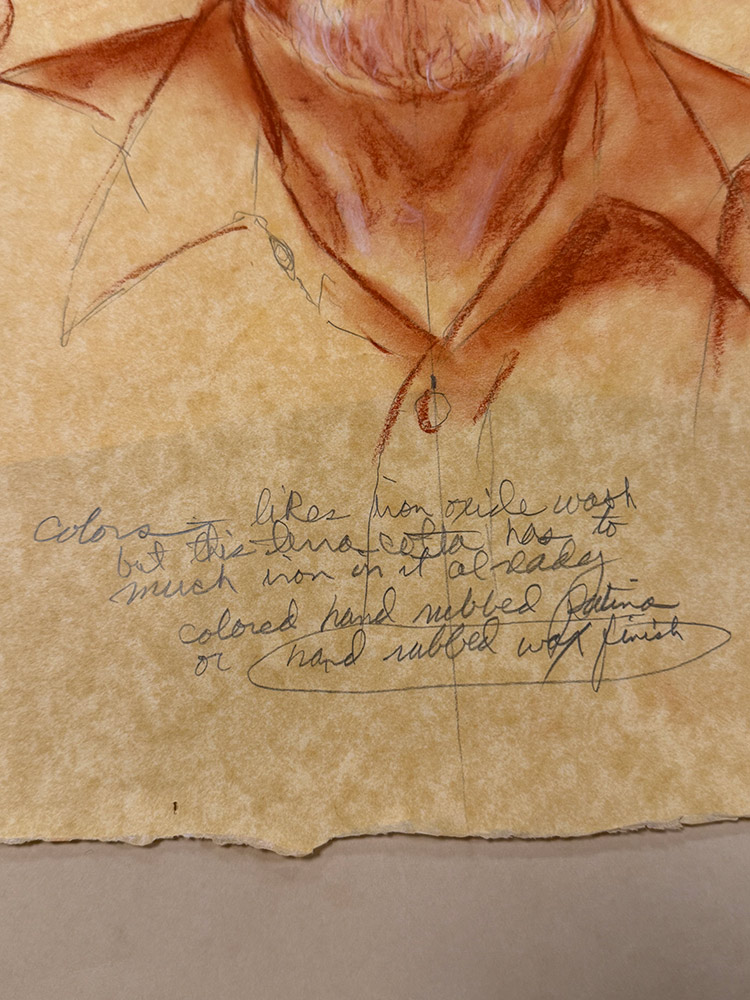 colors - likes iron oxide wash
but this terra-cotta has to
much iron in it already
colored hand rubbed patina
or hand rubbed wax finish